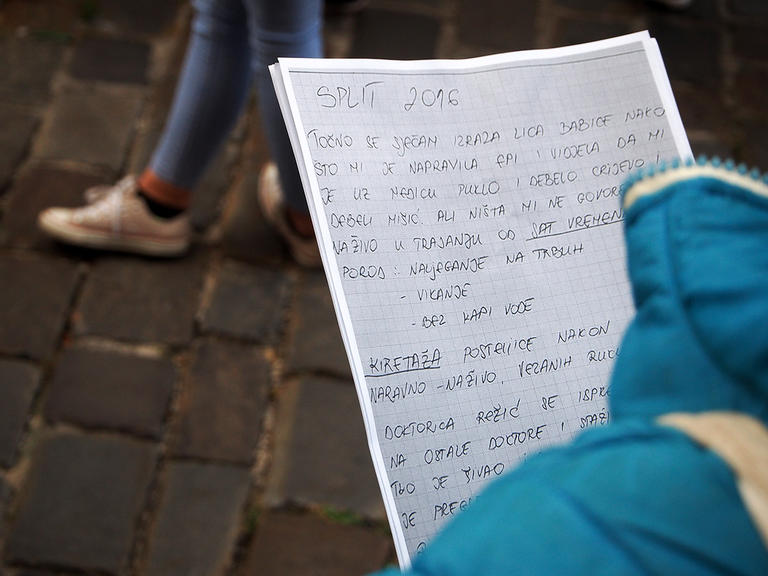 SPLIT 2016
TOČNO SE SJEĆAM IZRAZA LICA BABICE NAKO
ŠTO MI JE NAPRAVILA EPI I VIDJELA DA MI
JE UZ MEDICU PUKLO I DEBELO CRIJEVO I
DEBELI MIŠIĆ. ALI NIŠTA MI NE GOVORE
NAŽIVO U TRAJANJU OD SAT VREMEN
POROD: NALJEGANJE NA TRBUH
- VIKANJE
- BEZ KAPI VODE
KIRETAŽA POSTELJICE NAKON
NARAVNO - NAŽIVO, VEZANIH RUKU
DOKTORICA REŽIĆ SE ISPRI
NA OSTALE DOKTORE I STAŽ
TKO JE ŠIVAO
JE PREGL